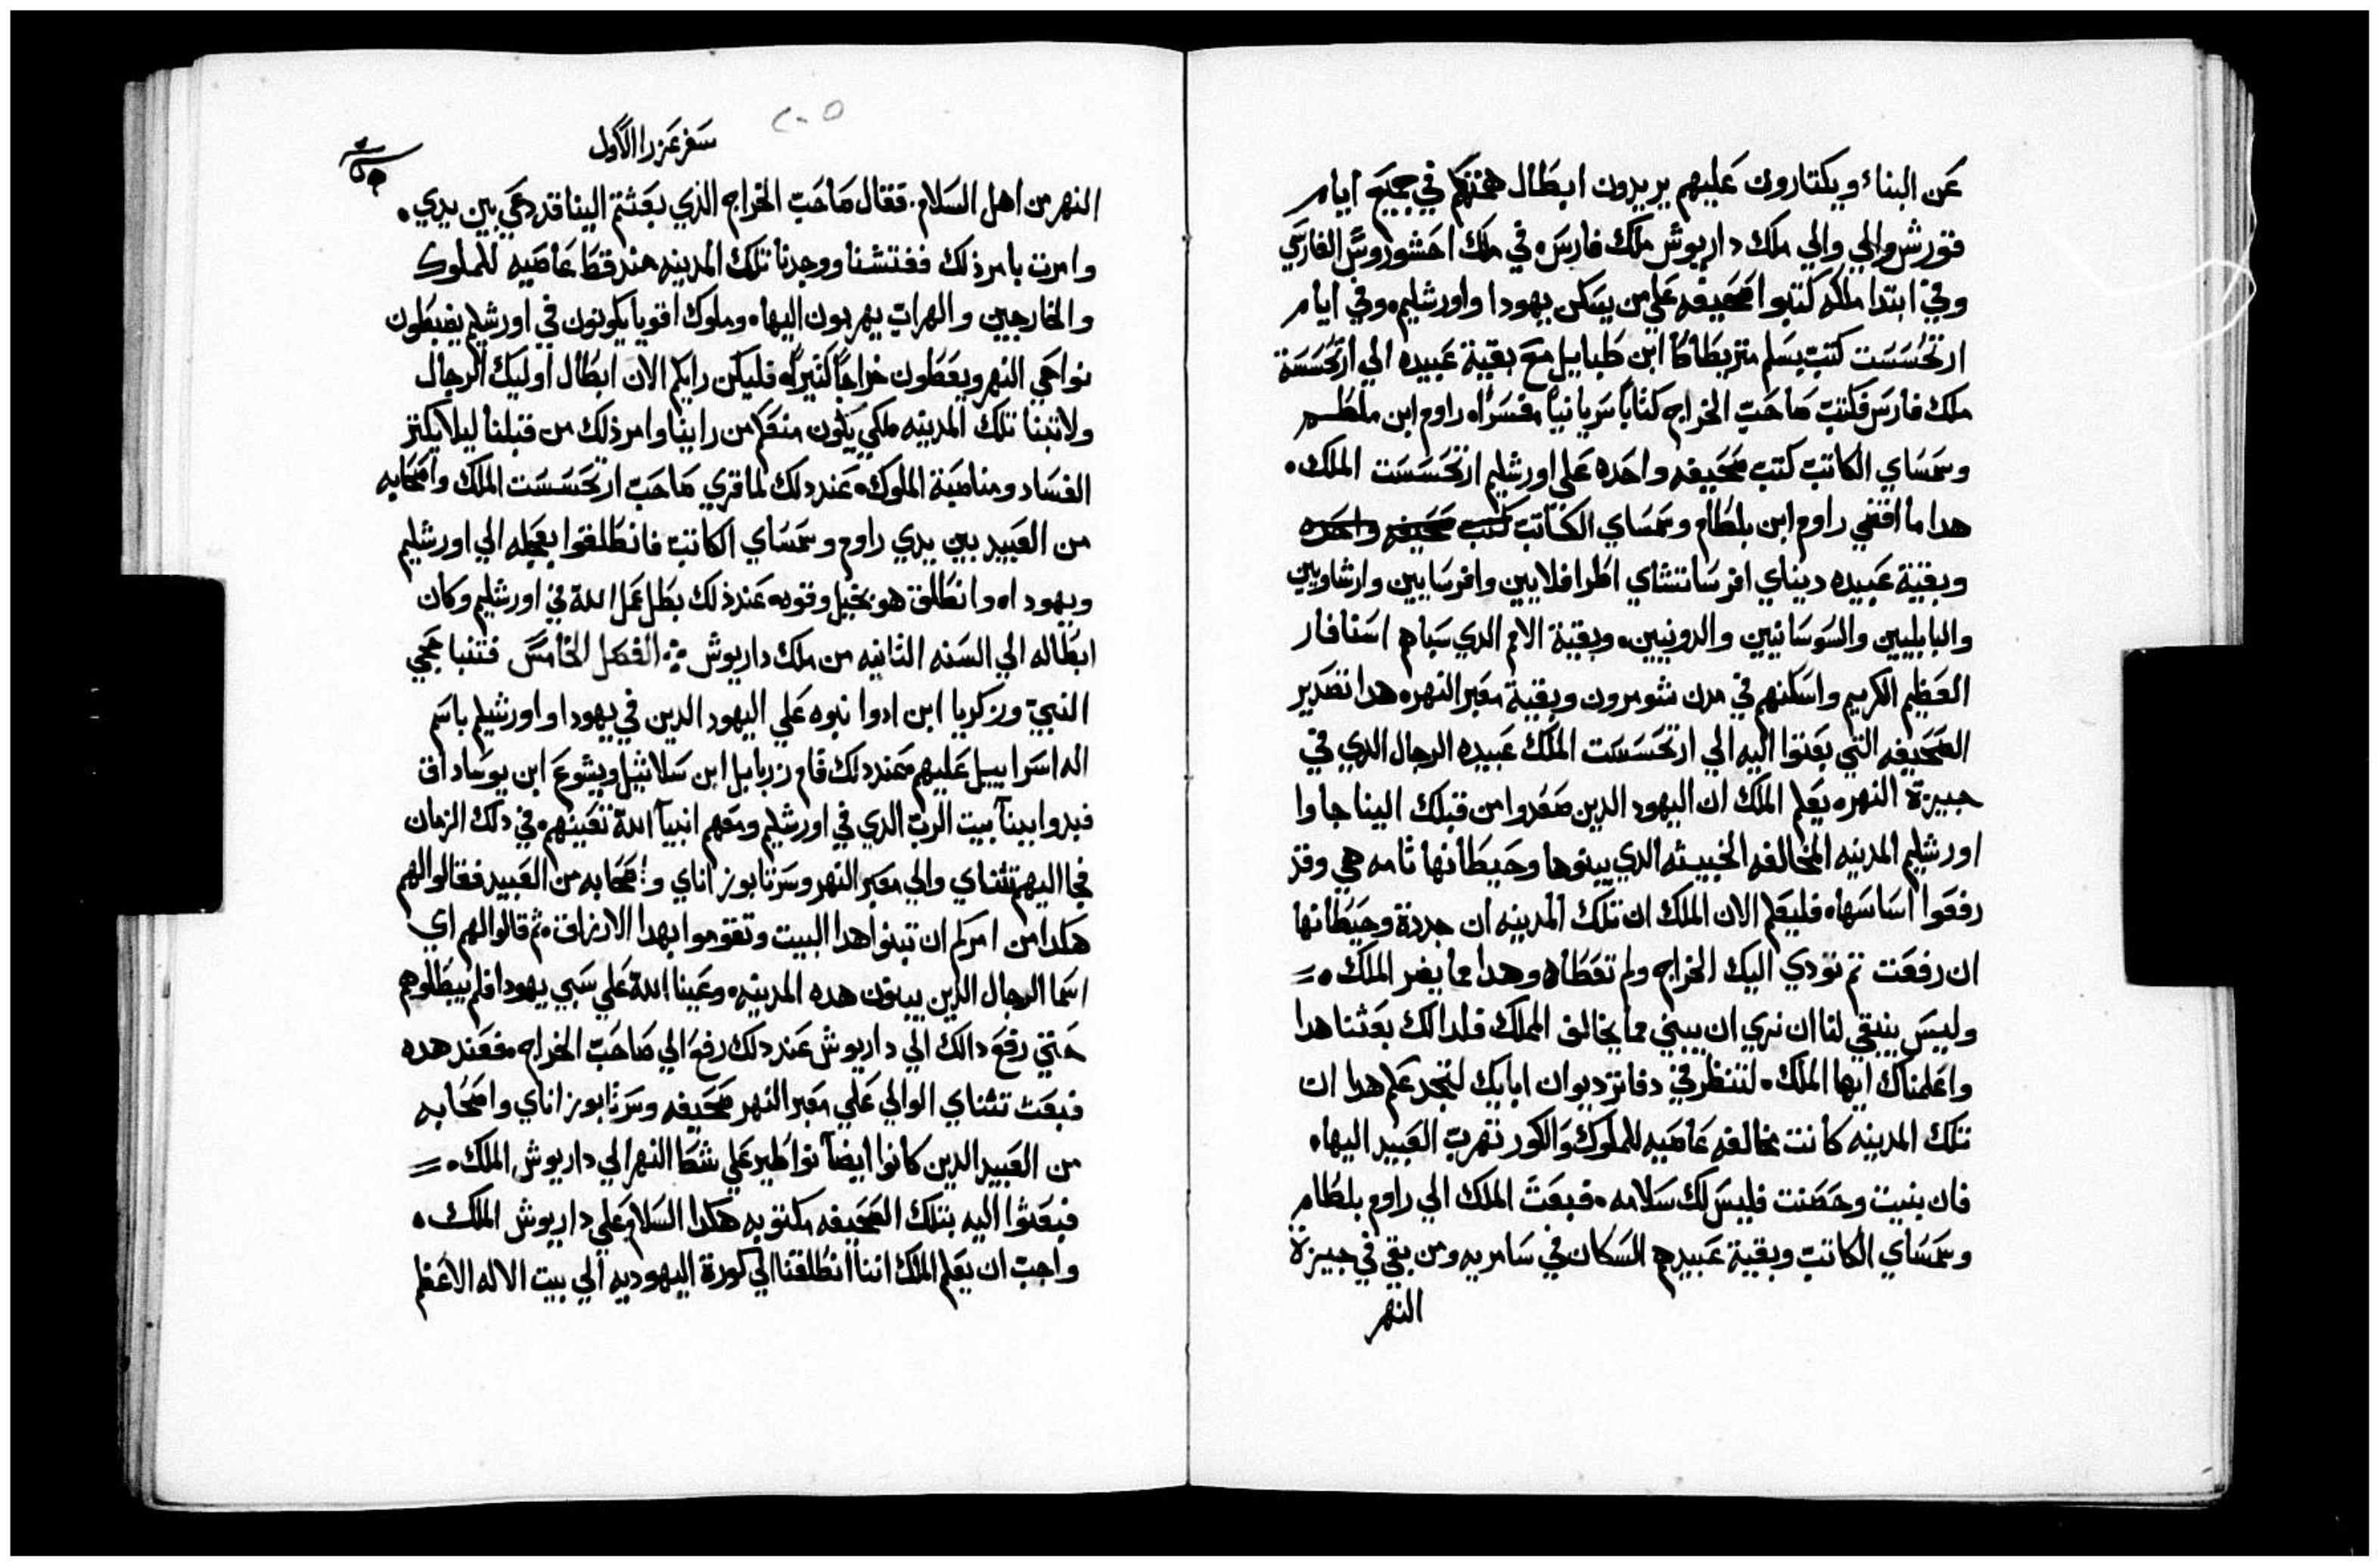 عن البناء ويكتارون عليهم يريدون ابطال همتهم في جميع ايام
قورش والي والي ملك داريوش ملك فارس ه في ملك احشوروش الفارسي
وفي ابتدا ملكه كتبوا صحيفه علي من يسكن يهودا واورشليم ه وفي ايام
ارتحسست كتب بسلم متريطاطا ابن طبابيل مع بقية عبيده الي ارتحسسة
ملك فارس فكتب صاحب الخراج كتاباً سريانياً مفسراً ه راوم ابن ملطم
وسمساي الكاتب كتب صحيفه واحده علي اورشليم ارتحسست الملك ه
هدا ما اقضي راوم ابن بلطام وسمساي الكاتب كتب صحيفه واحده
وبقية عبيده ديناي افرساتشاي اطرافلايين وافرسايين وارشاويين
والبابليين والسوسانيين والدونيين ه وبقية الامم الدي سباهم اسنافار
العظيم الكريم واسكنهم في مدن شومرون وبقية معبر النهر ه هدا تصدير
الصحيفه التي بعتوا اليه الي ارتحسست الملك عبيده الرجال الدي في
جيزة النهر ه يعلم الملك ان اليهود الدين صعدوا من قبلك الينا جاوا
اورشليم المدينه المخالفه الخبيثه الدي يبنوها وحيطانها تامه هي وقد
رفعوا اساسها ه فليعلم الان الملك ان تلك المدينه ان جددة وحيطانها
ان رفعت تم تودي اليك الخراج ولم تعطاه وهدا مما يضر الملك ه =
وليس ينبغي لنا ان نري ان يبني مما يخالف الملك فلدالك بعثنا هدا
واعلمناك ايها الملك ه لتنظر في دفاتر ديوان ابايك لتجد علم هدا ان
تلك المدينه كانت مخالفه عاصيه للملوك والكور تهرب العبيد اليها ه
فان بنيت وحصنت فليس لك سلامه ه فبعث الملك الي راوم بلطام
وسمساي الكاتب وبقية عبيدهم السكان في سامريه ومن بقي في جيزة
النهر
٢٠٥
سفر عزرا الاول
النهر من اهل السلام. فقال صاحب الخراج الذي بعثتم الينا قد دعي بين يدي ه
وامرت بامر ذلك ففتشنا ووجدنا تلك المدينه مند قط عاصيه للملوك
والخارجين والهراب يهربون اليها ه وملوك اقويا يكونون في اورشليم يضبطون
نواحي النهر ويعطون خراجاً كثيراً ه فليكن رايكم الان ابطال اوليك الرجال
ولاتبنا تلك المدينه ملكي يكون منعكم من راينا وامر ذلك من قبلنا ليلا يكتر
الفساد ومناصبة الملوك ه عند دلك لما قري صاحب ارتحسست الملك واصحابه
من العبيد بين يدي راوم وسمساي الكاتب فانطلقوا بعجله الي اورشليم
ويهودا ه وانطلق هو بخيل وقوه ه عند ذلك بطل عمل الله في اورشليم وكان
ابطاله الي السنه الثانيه من ملك داريوش ⁘ الفصل الخامس فتنبا حجي
النبي وزكريا ابن ادوا نبوه علي اليهود الدين في يهودا واورشليم باسم
اله اسراييل عليهم ه عند دلك قام زربابل ابن سلاتييل ويشوع ابن يوساداق
فبدوا ببنا بيت الرب الدي في اورشليم ومعهم انبيا الله تعينهم ه في دلك الزمان
فجا اليهم تتناي والي معبر النهر وسرتابوز اناي واصحابه من العبيد فقالوا لهم
هكدا من امركم ان تبنوا هدا البيت وتقوموا بهدا الارزاق ه ثم قالوا لهم اي
اسما الرجال الدين يبنون هده المدينه ه وعينا الله علي سبي يهودا فلم يبطلوهم
حتي رفع دالك الي داريوش عند دلك رفع الي صاحب الخراج ه فعند هده
فبعث تتناي الوالي علي معبر النهر صحيفه وسرتابوز اناي واصحابه
من العبيد الدين كانوا ايضاً نواطير علي شط النهر الي داريوش الملك ه =
فبعثوا اليه بتلك الصحيفه مكتوبه هكدا السلام علي داريوش الملك ه
واجب ان يعلم الملك اننا انطلقنا الي كورة اليهوديه الي بيت الاله الاعظم